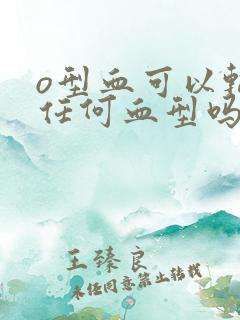 o型血可以
任何血型吗
王臻良
未经同意禁止转载